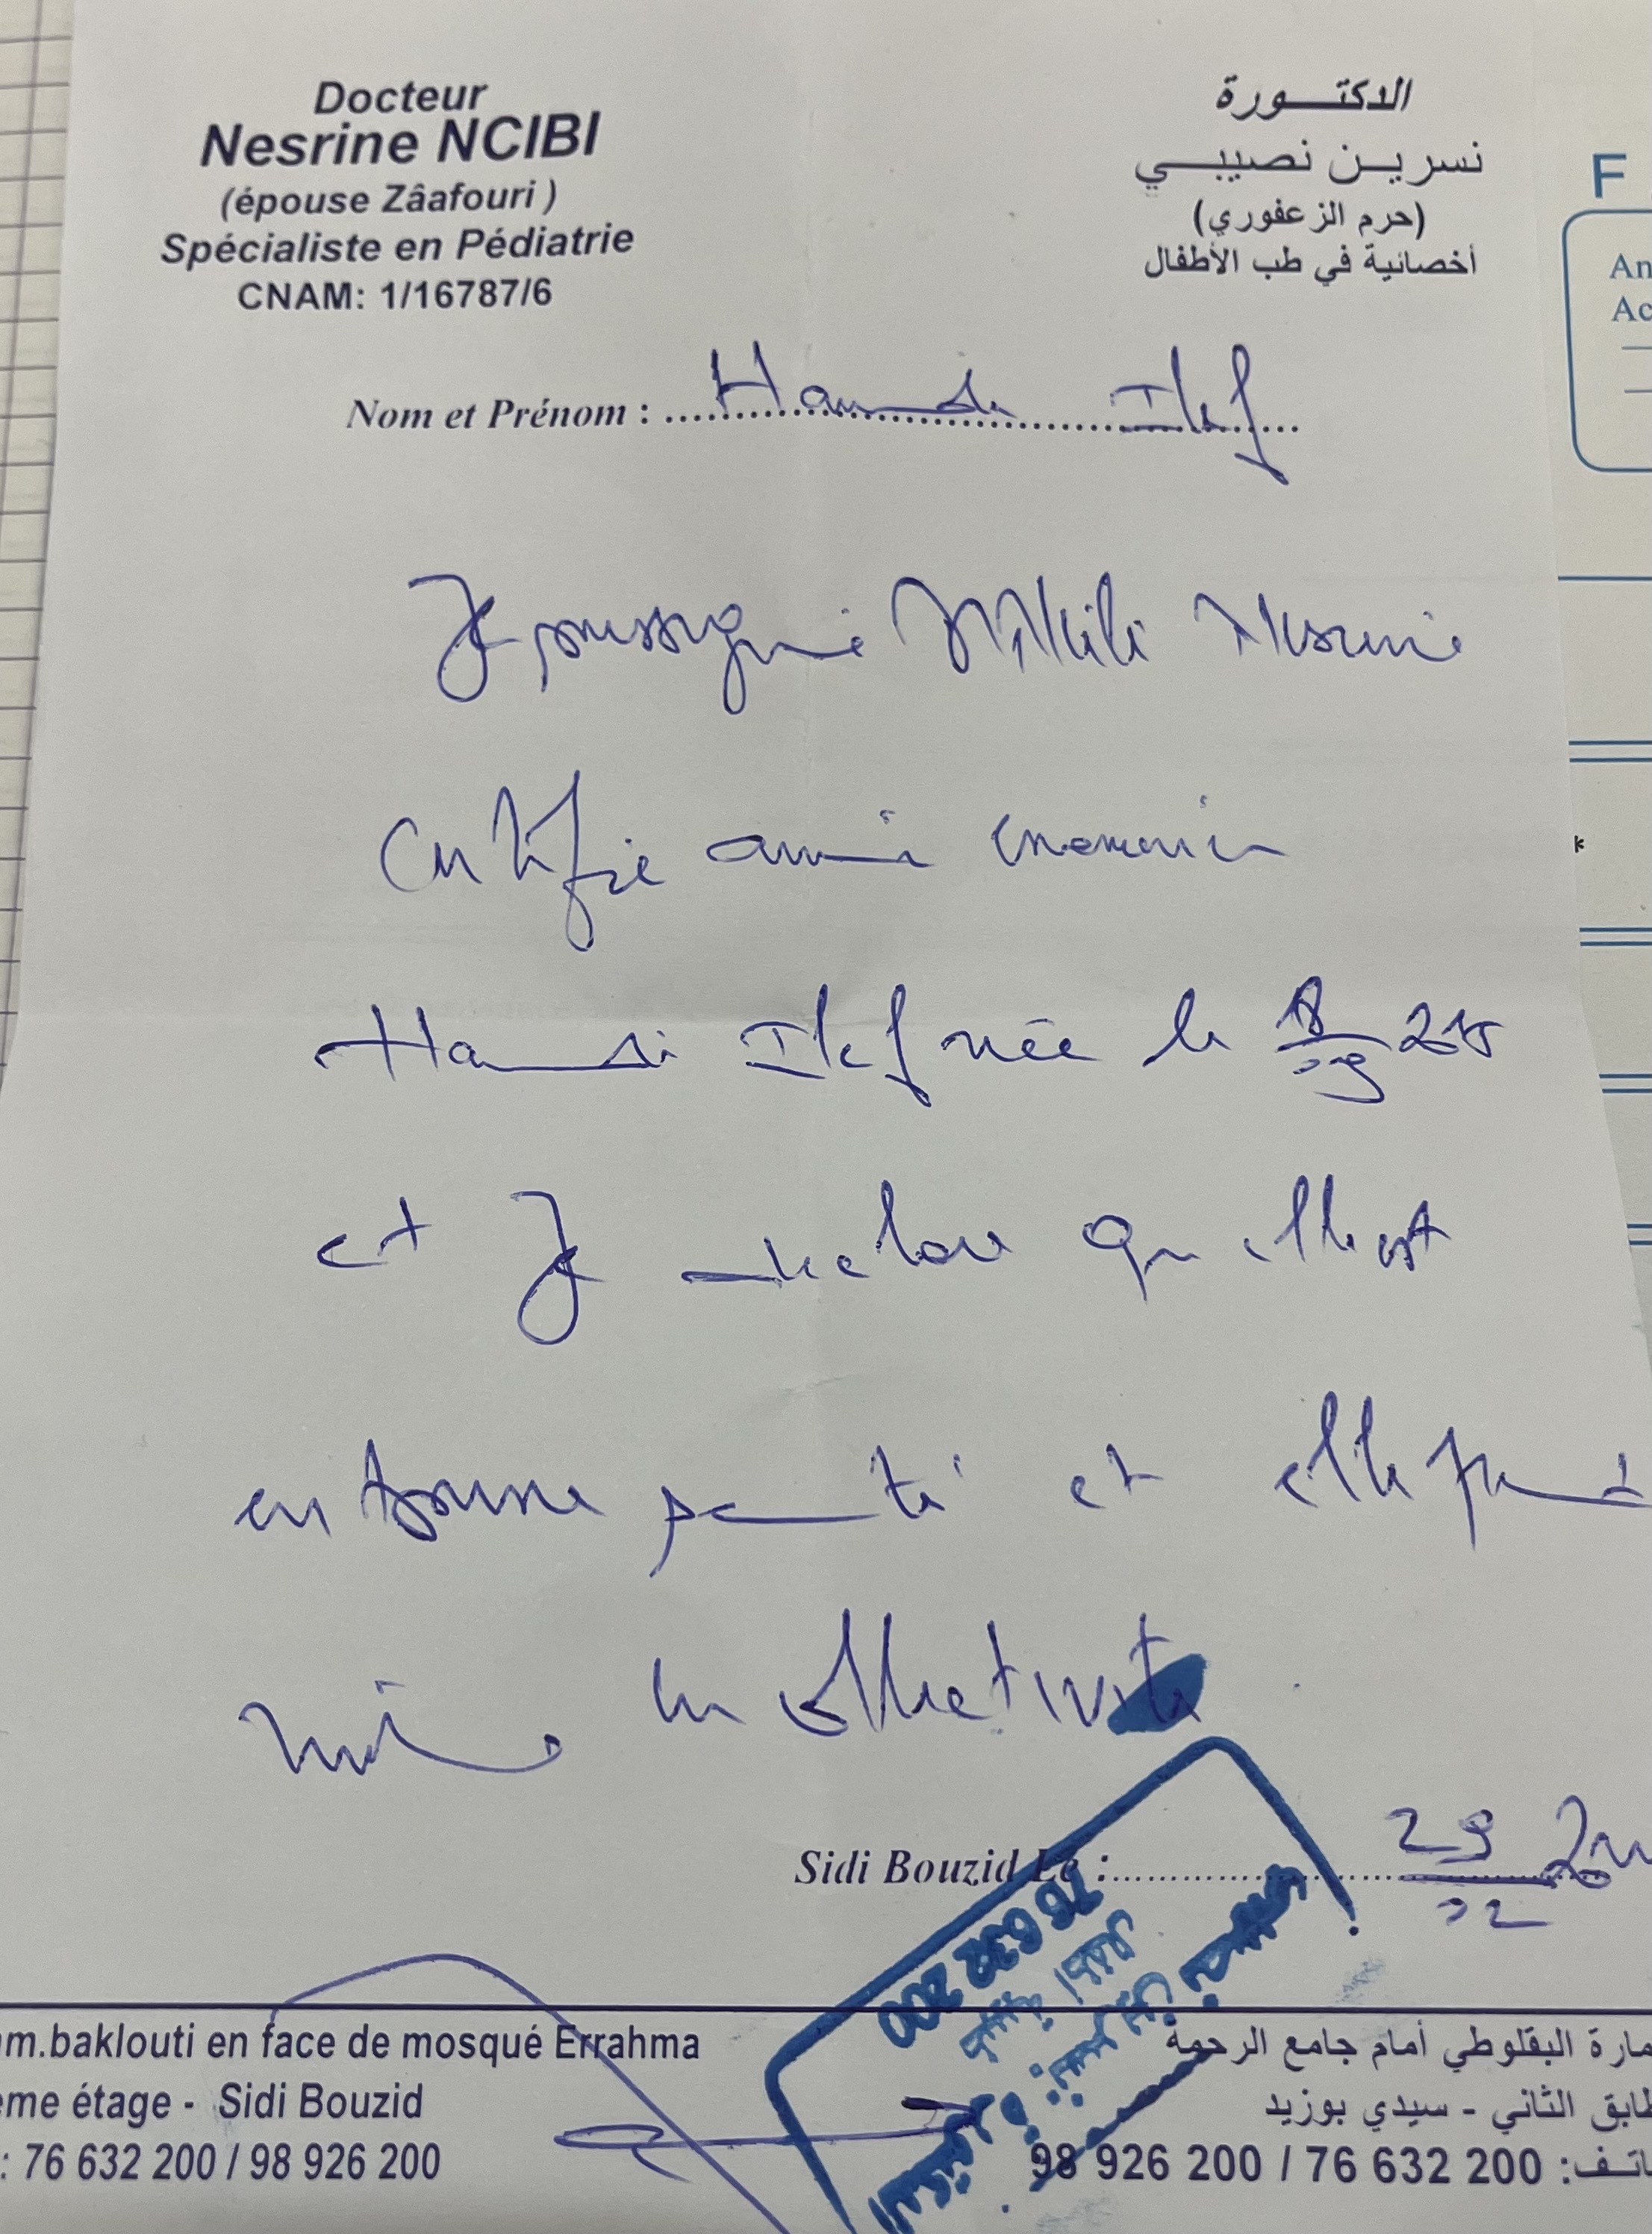 Docteur
Nesrine NCIBI
(épouse Zâafouri )
Spécialiste en Pédiatrie
CNAM: 1/16787/6
الدكتـــورة
نسريـن نصيبـــي
(حرم الزعفوري)
أخصائية في طب الأطفال
F
An
Ac
Nom et Prénom : Hamdi Ilef
Je soussigné Nesrine
certifie avoir examiné
Hamdi Ilef née le
et Je declare qu elle est
en bonne santé et elle peut
la collectivité
Sidi Bouzid Le : 29
02
76 632 200
m.baklouti en face de mosqué Errahma
ème étage - Sidi Bouzid
: 76 632 200 / 98 926 200
مارة البقلوطي أمام جامع الرحمة
طابق الثاني - سيدي بوزيد
اتـف: 200 632 76 / 200 926 98